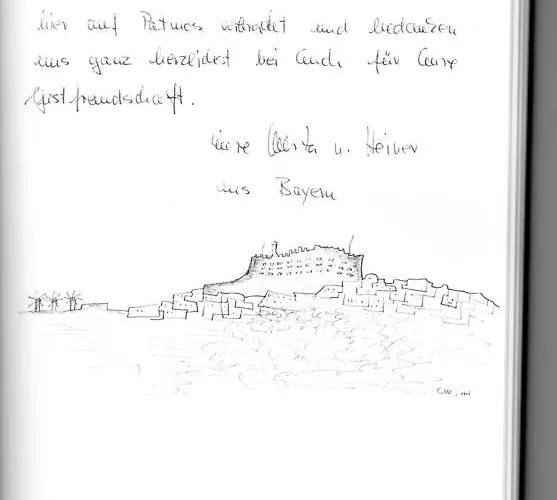 hier auf Patmos verbracht und bedanken
uns ganz herzlichst bei Euch für Eure
Gastfreundschaft.
Eure u. Heiner
aus Bayern
CW